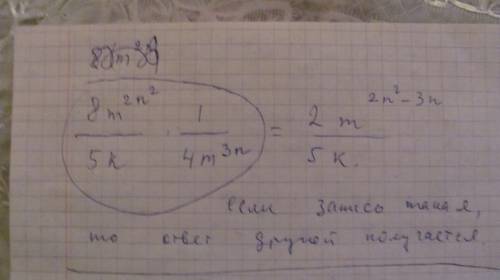 8m^{2n^2}/5k · 1/4m^{3n} = 2m^{2n^2-3n}/5k.
если запись такая,
то ответ другой получается.